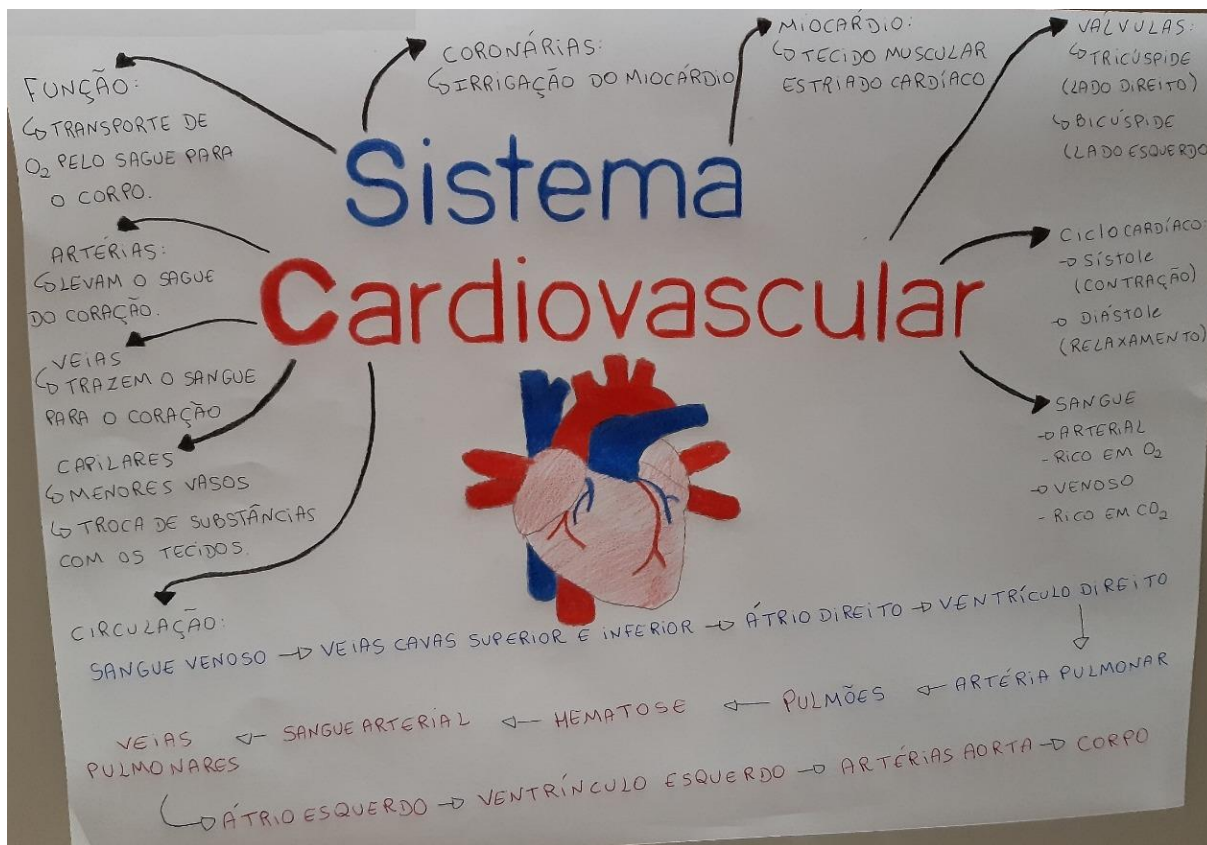 Sistema
Cardiovascular
FUNÇÃO:
↳ TRANSPORTE DE
O₂ PELO SAGUE PARA
O CORPO.
ARTÉRIAS:
↳ LEVAM O SAGUE
DO CORAÇÃO.
VEIAS
↳ TRAZEM O SANGUE
PARA O CORAÇÃO
CAPILARES
↳ MENORES VASOS
↳ TROCA DE SUBSTÂNCIAS
COM OS TECIDOS.
CORONÁRIAS:
↳ IRRIGAÇÃO DO MIOCÁRDIO
MIOCÁRDIO:
↳ TECIDO MUSCULAR
ESTRIADO CARDÍACO
VALVULAS:
↳ TRICÚSPIDE
(LADO DIREITO)
↳ BICÚSPIDE
(LADO ESQUERDO
CICLO CARDÍACO:
→ SÍSTOLE
(CONTRAÇÃO)
→ DIÁSTOLE
(RELAXAMENTO)
SANGUE
→ ARTERIAL
- RICO EM O₂
→ VENOSO
- RICO EM CO₂
CIRCULAÇÃO:
SANGUE VENOSO → VEIAS CAVAS SUPERIOR E INFERIOR → ÁTRIO DIREITO → VENTRÍCULO DIREITO
↓
VEIAS ← SANGUE ARTERIAL ← HEMATOSE ← PULMÕES ← ARTÉRIA PULMONAR
PULMONARES
↳ ÁTRIO ESQUERDO → VENTRÍNCULO ESQUERDO → ARTÉRIAS AORTA → CORPO